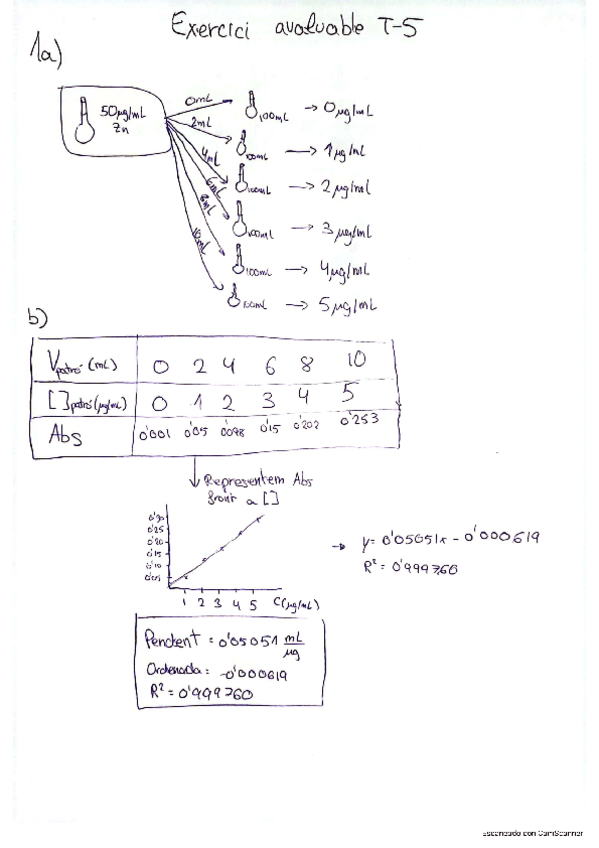 Exercici avaluable T-5
1a)
50µg/mL
Zn
0mL 100mL → 0µg/mL
2mL 100mL → 1µg/mL
4mL 100mL → 2µg/mL
6mL 100mL → 3µg/mL
8mL 100mL → 4µg/mL
10mL 100mL → 5µg/mL
b)
Vpatró (mL) 0 2 4 6 8 10
[ ]patró (µg/mL) 0 1 2 3 4 5
Abs 0'001 0'05 0'098 0'15 0'202 0'253
↓ Representem Abs
front a [ ]
0'30
0'25
0'20
0'15
0'10
0'05
1 2 3 4 5 C(µg/mL)
→ y= 0'05051x - 0'000619
R²= 0'999760
Pendent = 0'05051 mL/µg
Ordenada: -0'000619
R²= 0'999760
Escaneado con CamScanner